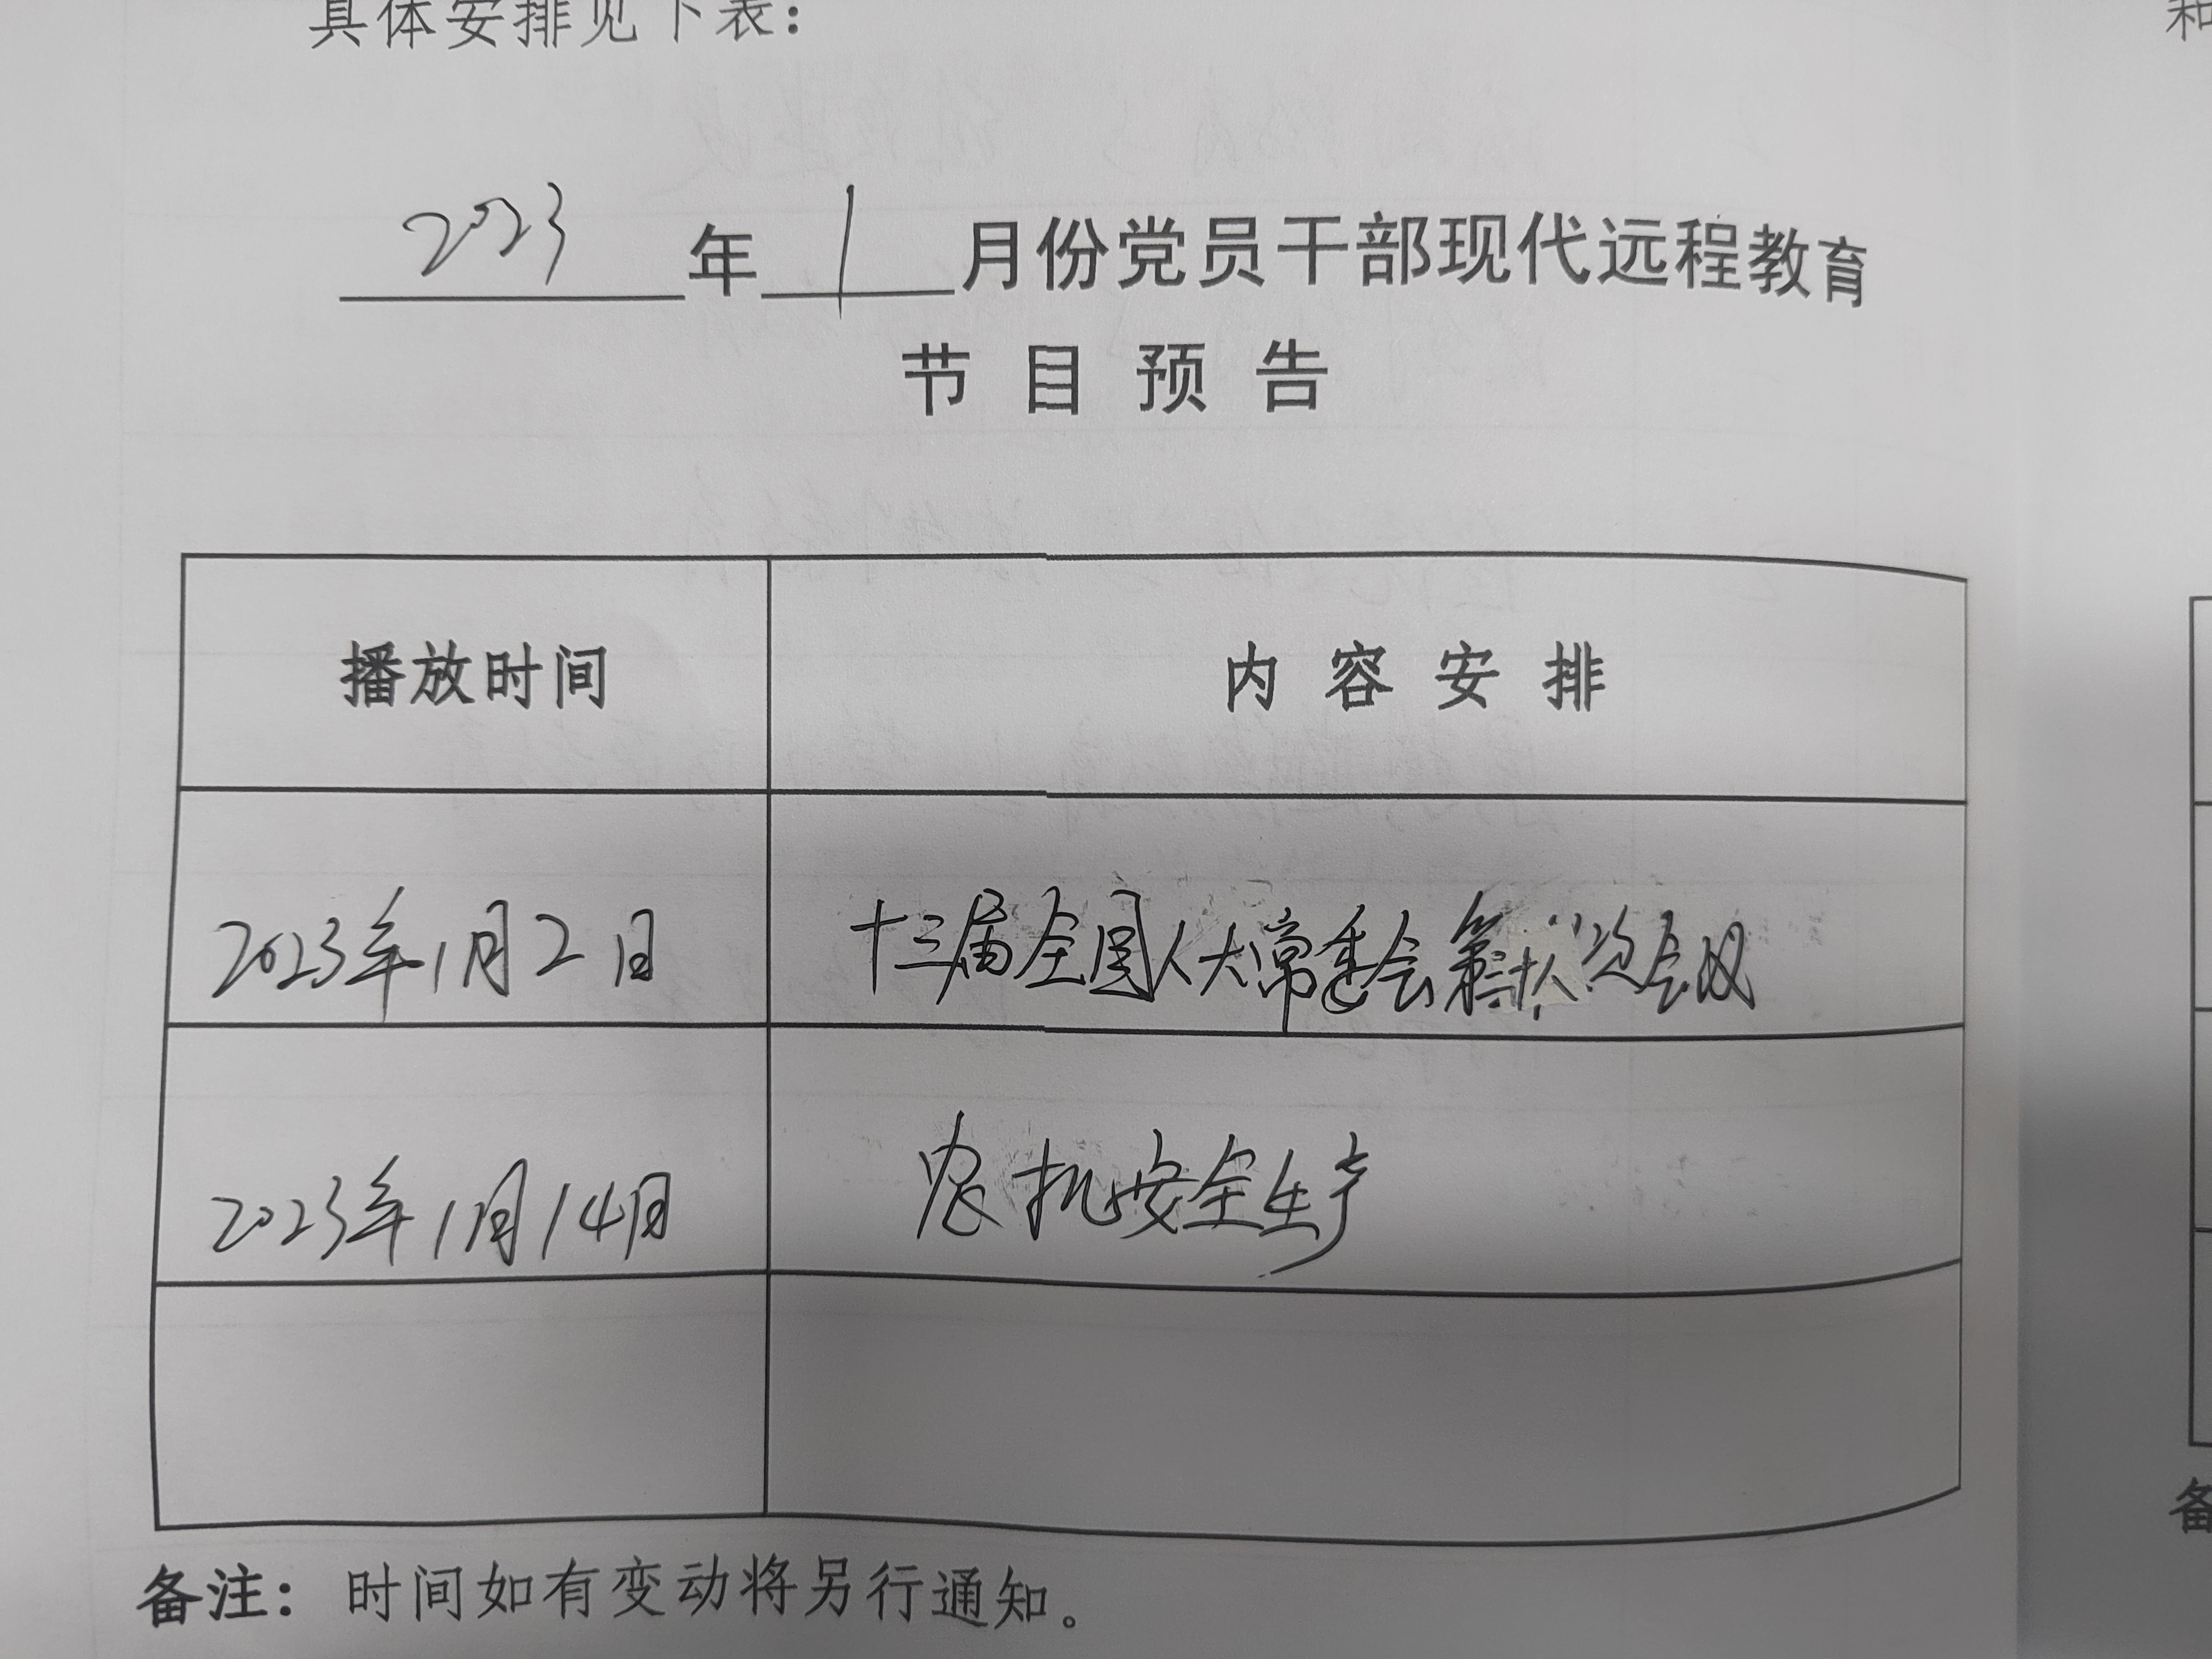 具体安排见下表：
2023年1月份党员干部现代远程教育
节目预告
播放时间 内容安排
2023年1月2日 十三届全国人大常委会第三十八次会议
2023年1月14日 农机安全生产
备注：时间如有变动将另行通知。
和
备